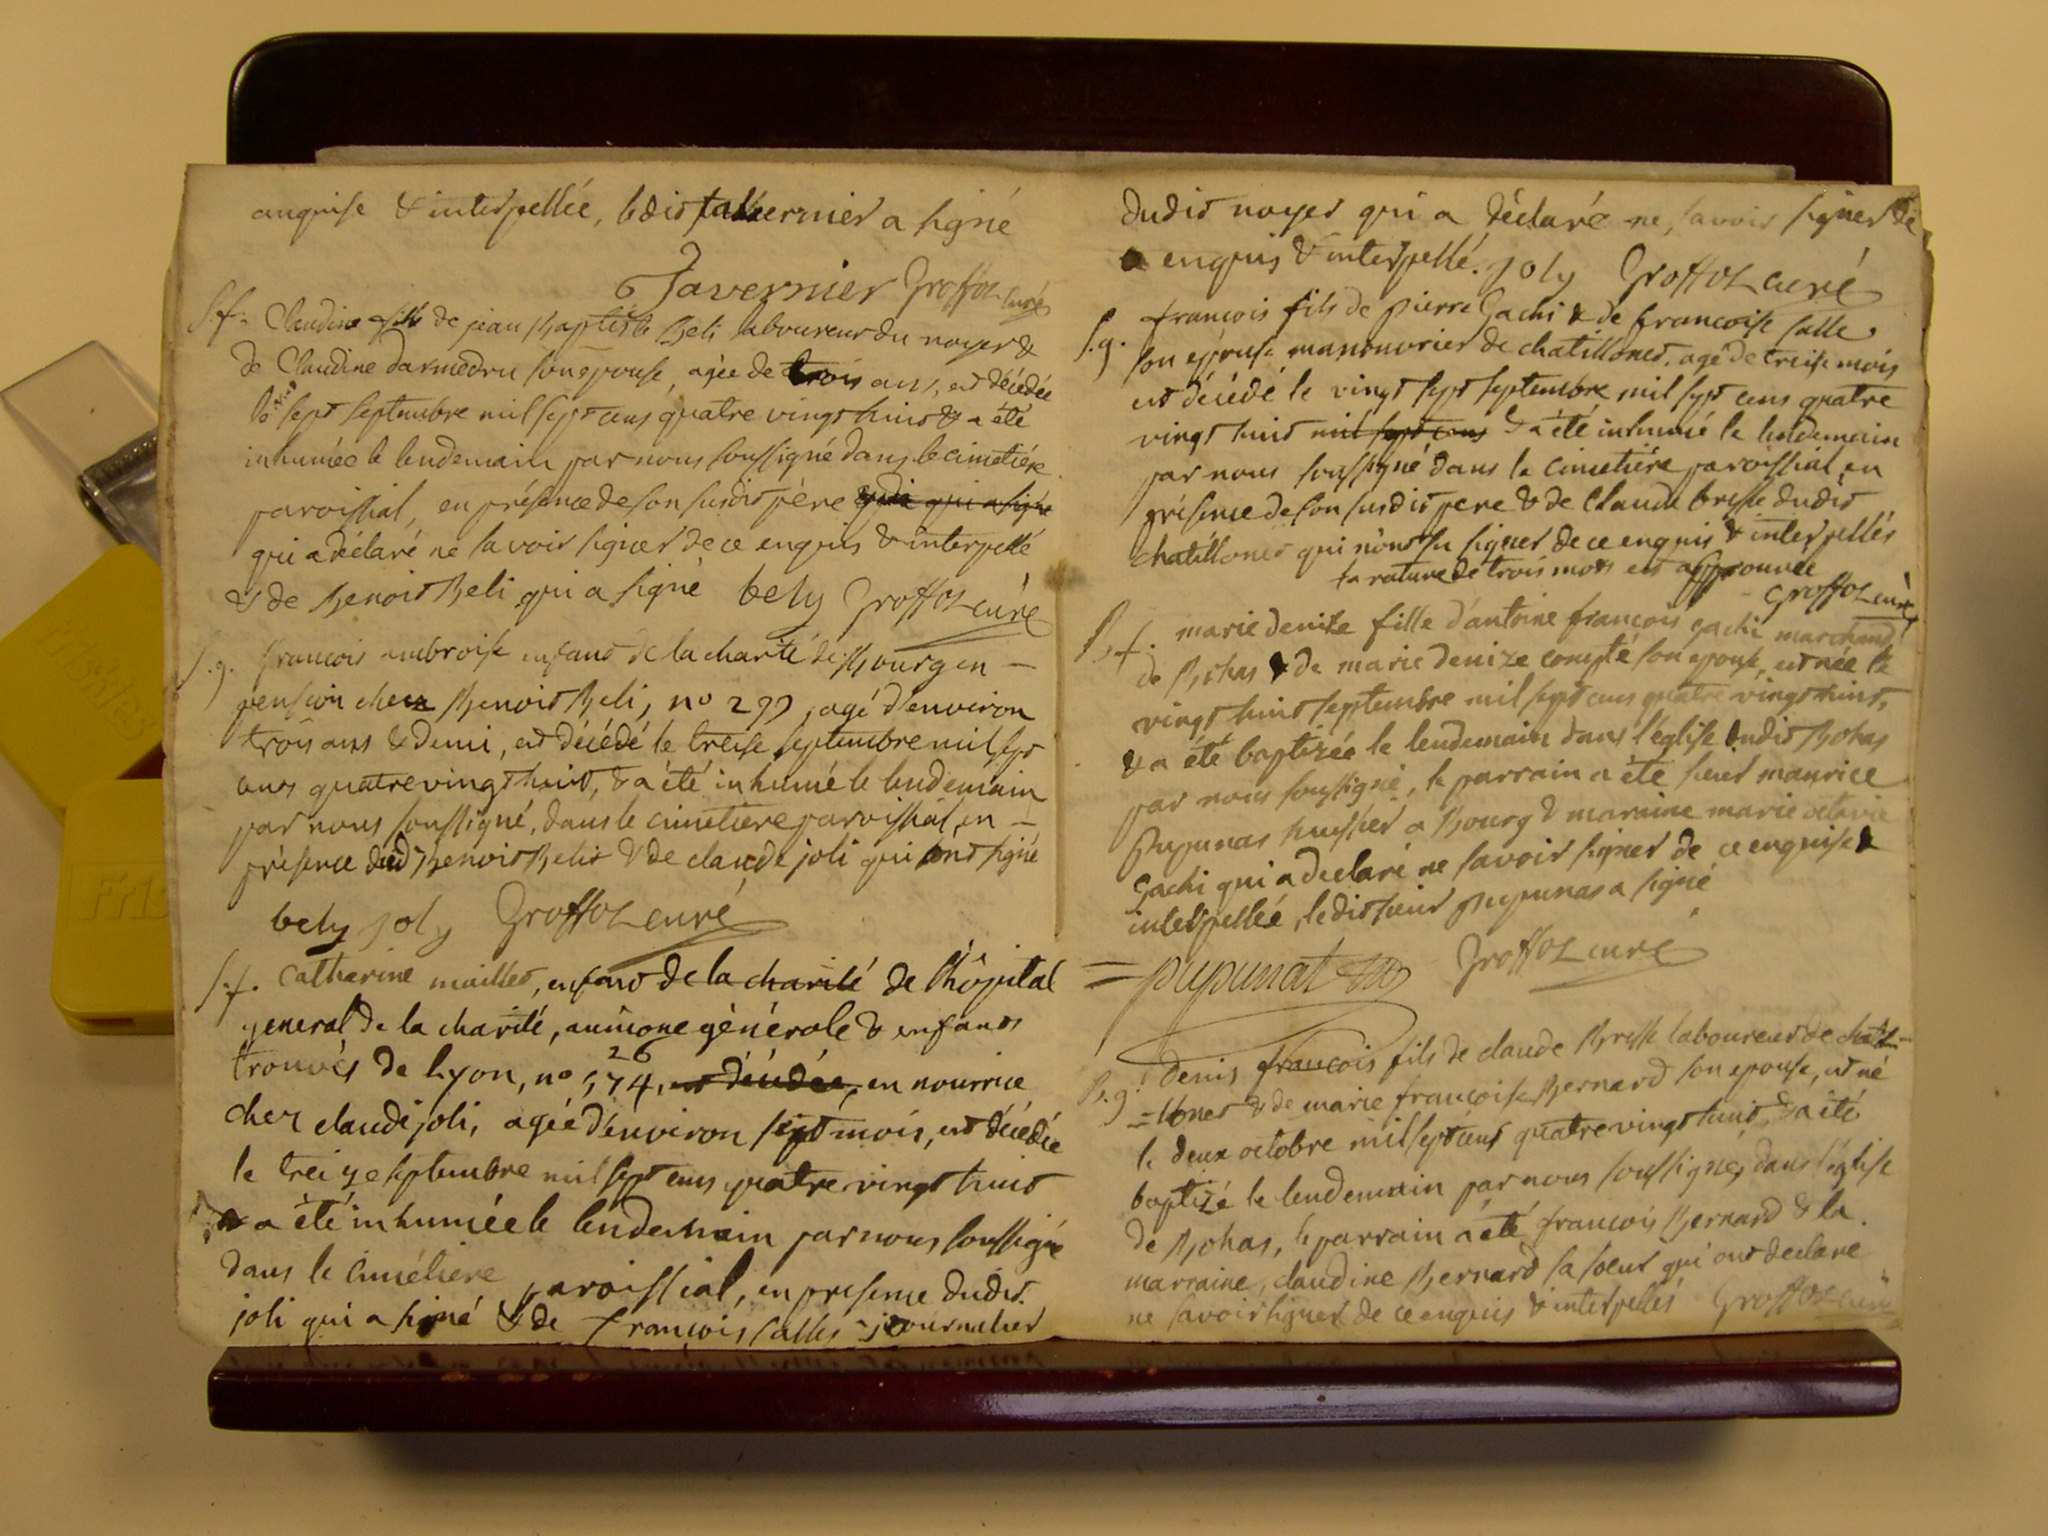 enquise & interpellée, ledit tavernier a signé
Tavernier Groffoz curé
S.f. Claudine fille de jean Baptiste Beli laboureur du noyer &
de Claudine darmedru son epouse, agée de trois ans, est décédée
le sept septembre mil sept cens quatre vingt huit & a été
inhumée le lendemain par nous soussigné dans le cimetiére
paroissial, en présence de son susdit père qui a signé
qui a déclaré ne savoir signer de ce enquis & interpellé
& de Benoit Beli qui a signé bely Groffoz curé
S.g. françois ambroise enfant de la charité de Bourg en –
pension chez Benoit Beli, no 299, agé d'environ
trois ans & demi, est décédé le treise septembre mil sept
cens quatre vingt huit, & a été inhumé le lendemain
par nous soussigné, dans le cimetiere paroissial, en –
présence dud Benoit Beli & de claude joli qui ont signé
bely joly Groffoz curé
S.f. Catherine maillet, enfant de la charité de l'hôpital
general de la charité, aumône générale & enfants
trouvés de Lyon, no 574, 26 est décédée, en nourrice
chez claude joli, agée d'environ sept mois, est décédée
le treize septembre mil sept cens quatre vingt huit
& a été inhumée le lendemain par nous soussigné
dans le cimétiere paroissial, en presence dudit
joli qui a signé & de françois salles journalier
dudit noyer qui a déclaré ne savoir signer de
ce enquis & interpellé. joly Groffoz curé
S.g. françois fils de pierre Gachi & de francoise salle
son epouse manouvrier de chatillonet, agé de treise mois
est décédé le vingt sept septembre mil sept cens quatre
vingt huit mil sept cens & a été inhumé le lendemain
par nous soussigné dans le cimetiére paroissial en
présence de son susdit pere & de Claude bresse dudit
chatillonet qui n'ont su signer de ce enquis & interpellés
la rature de trois mots est approuvée
Groffoz curé
B.f. marie denize fille d'antoine françois gachi marchand
de Bohas & de marie denize compté son epouse, est née le
vingt huit septembre mil sept cens quatre vingt huit,
& a été baptizée le lendemain dans l'église dudit Bohas
par nous soussigné, le parrain a été sieur maurice
Pupunat huissier a Bourg & maraine marie octavie
gachi qui a declaré ne savoir signer de ce enquise &
interpellée, ledit sieur pupunat a signé
pupunat Groffoz curé
B.g. Denis françois fils de claude Bresse laboureur de chatil-
=lonet & de marie françoise Bernard son epouse, est né
le deux octobre mil sept cens quatre vingt huit & a été
baptizé le lendemain par nous soussigné, dans l'église
de Bohas, le parrain a été françois Bernard & la
marraine, claudine Bernard sa soeur qui ont declaré
ne savoir signer de ce enquis & interpellés Groffoz curé